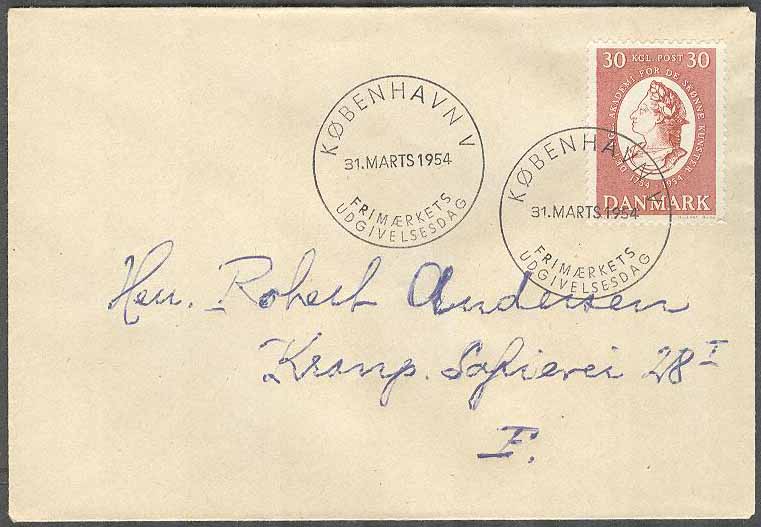 30 KGL. POST 30
AKADEMI FOR DE SKØNNE KUNSTER
1754 1954
DANMARK
KØBENHAVN V
31.MARTS 1954
FRIMÆRKETS
UDGIVELSESDAG
KØBENHAVN V
31.MARTS 1954
FRIMÆRKETS
UDGIVELSESDAG
Herr. Robert Andersen
Kronp. Sofievei 28 I
F.